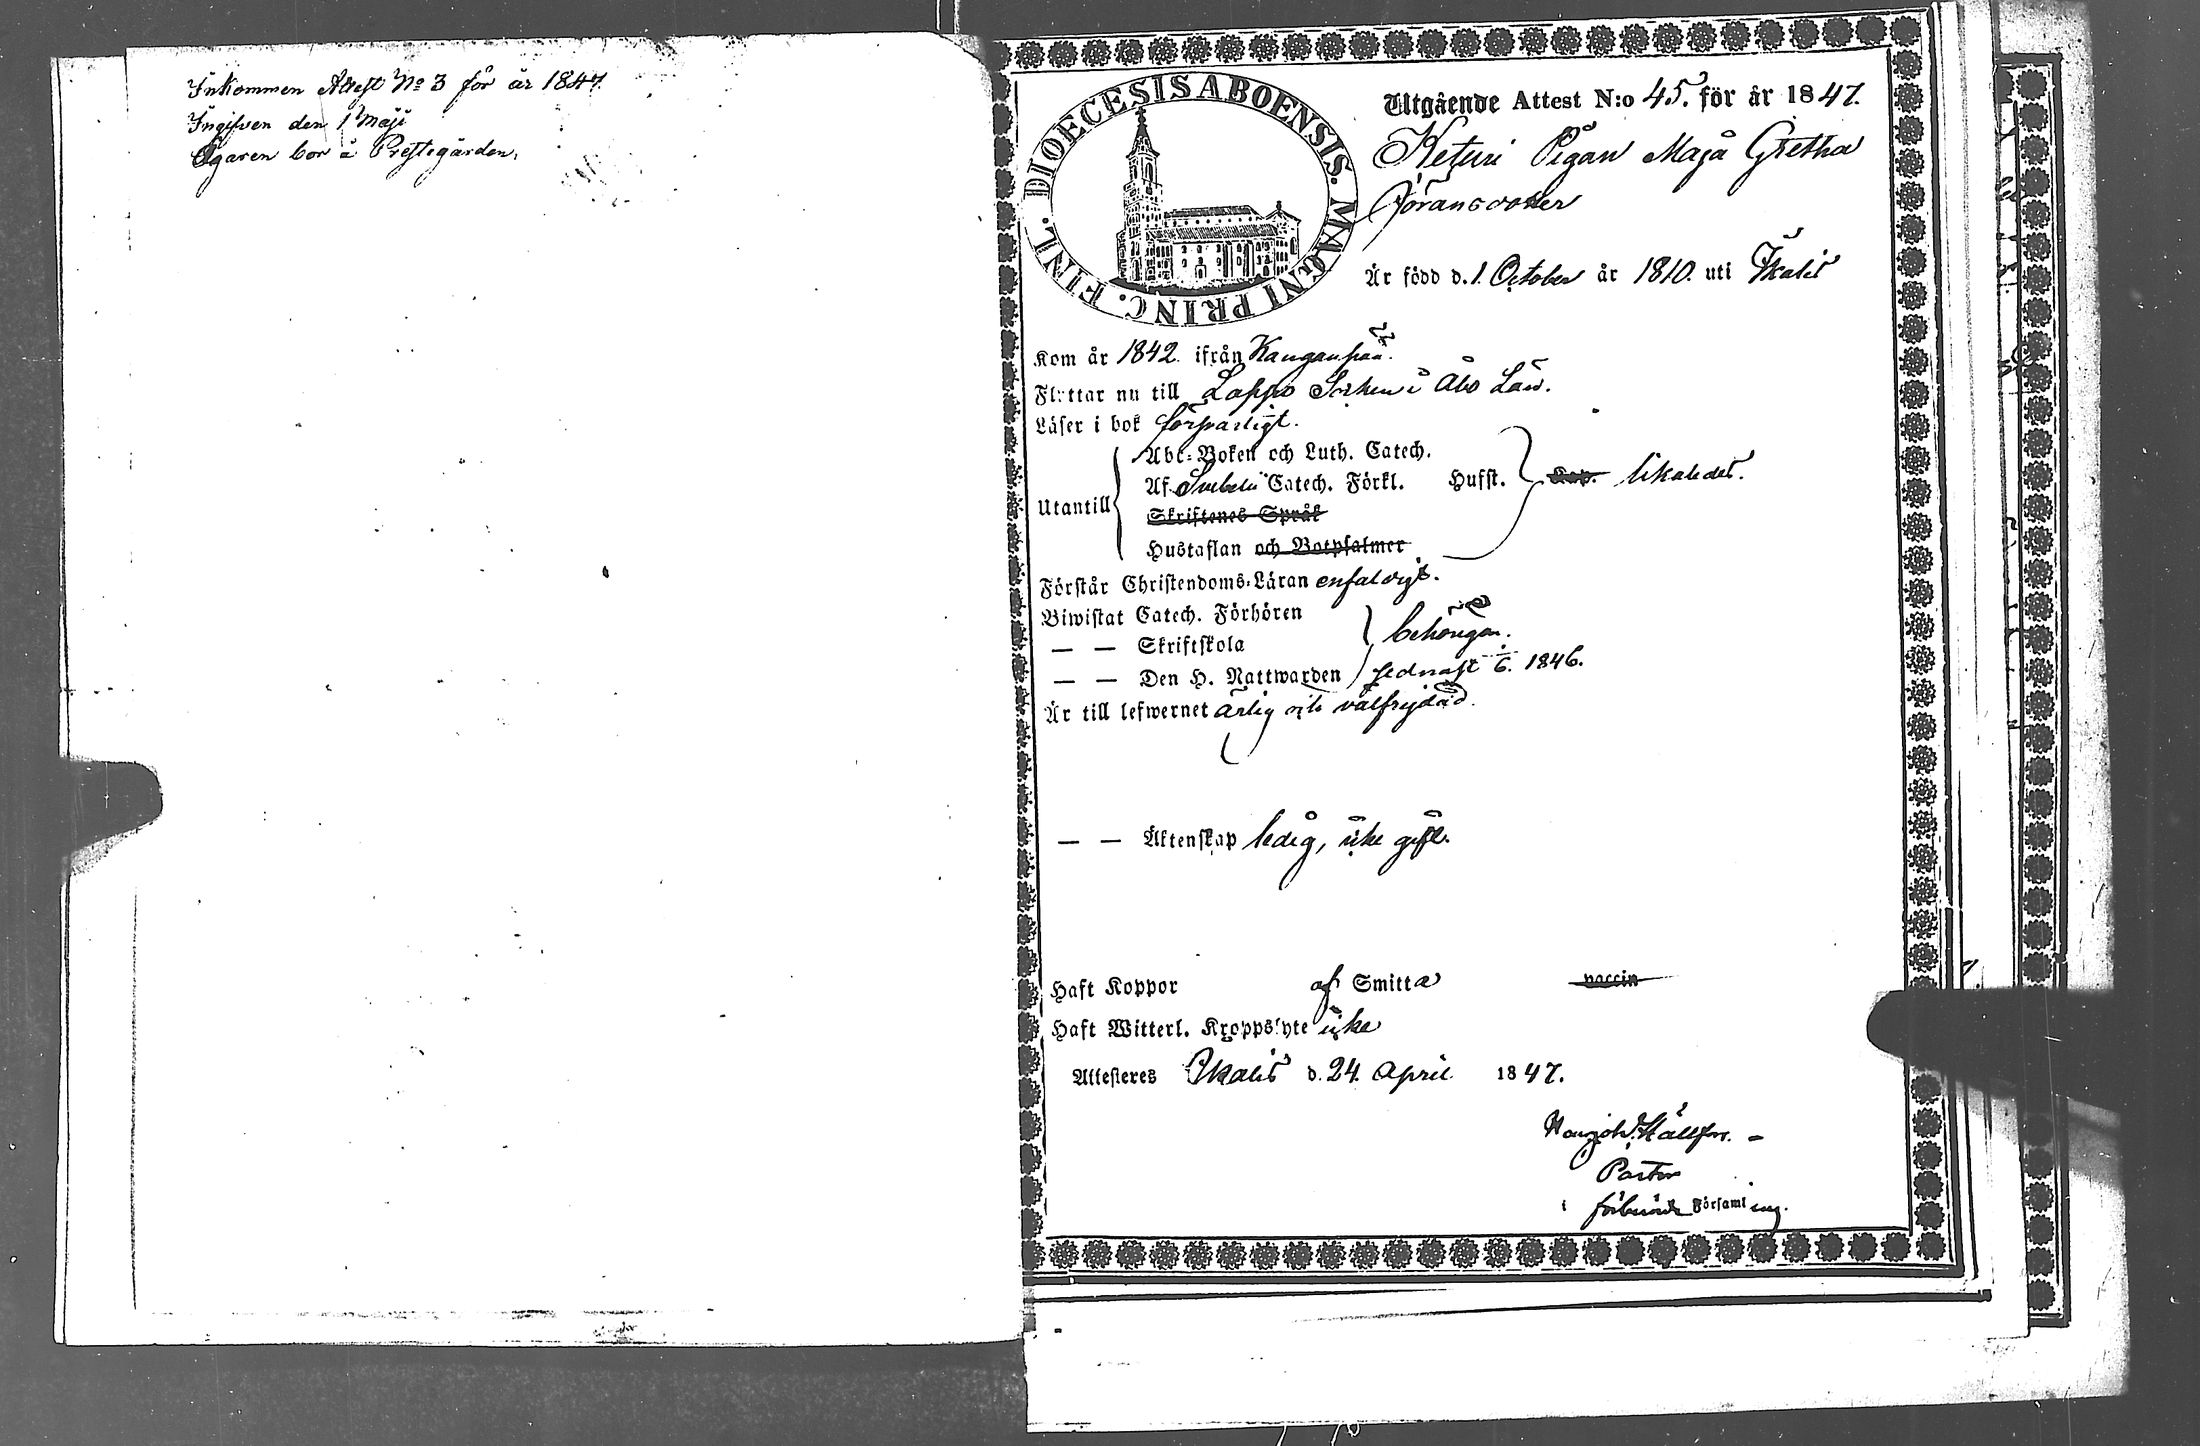 Inkommen Attest No 3 för år 1847.
Ingifven den 1 Maji
Ägaren bor å Prestegården.
DIOECESIS ABOENSIS. MAGNI PRINC. FINL.
Utgående Attest N:o 45. för år 1847.
Keturi Pigan Maja Gretha
Jöransdotter
Är född d. 1. October år 1810. uti Ikalis
Kom år 1842. ifrån Kanganpää.
Flyttar nu till Lappo Socken i Åbo Län.
Läser i bok försvarligt.
Utantill
Abc-Boken och Luth. Catech.
Af Svebelii Catech. Förkl. Hufst. Kap. likaledes.
Skriftenes Språk
Hustaflan och Botpsalmer
Förstår Christendoms-Läran enfaldigt.
Biwistat Catech. Förhören
— — Skriftskola behörigen.
— — Den H. Nattwarden sednast 1846.
Är till lefwernet ärlig och välfrejdad.
— — Äktenskap ledig, icke gift.
Haft Koppor af Smitta vaccin
Haft Witterl. Kroppslyte icke
Attesteres Ikalis d. 24. April 1847.
Pastor
i förberörde Församling.